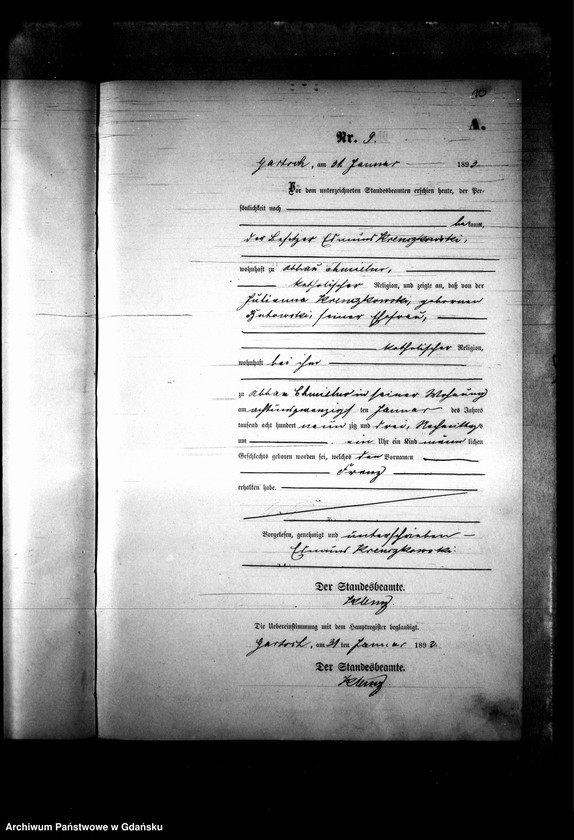 10
A.
Nr. 9.
Gartsch, am 31. Januar 1893.
Vor dem unterzeichneten Standesbeamten erschien heute, der Per-
sönlichkeit nach
bekannt,
der Besitzer Edmund Krenzkowski,
wohnhaft zu Abbau Chmielno,
katholischer Religion, und zeigte an, daß von der
Julianna Krenzkowski, geborenen
seiner Ehefrau,
katholischer Religion,
wohnhaft bei ihm
zu Abbau Chmielno in seiner Wohnung
am achtundzwanzigsten ten Januar des Jahres
tausend acht hundert neunzig und drei, Nachmittags
um ein Uhr ein Kind männlichen
Geschlechts geboren worden sei, welches den Vornamen
Franz
erhalten habe.
Vorgelesen, genehmigt und unterschrieben
Edmund Krenzkowski
Der Standesbeamte.
Klenz.
Die Uebereinstimmung mit dem Hauptregister beglaubigt.
Gartsch, am 31 ten Januar 1893.
Der Standesbeamte.
Klenz.
Archiwum Państwowe w Gdańsku